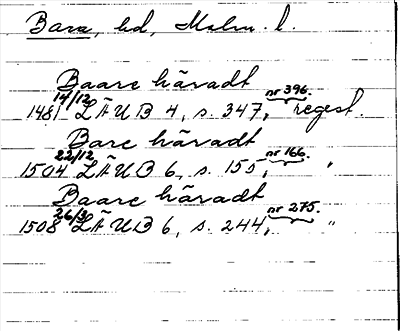 Bara, hd, Malm. l.
Baare häradt
14/12 nr 396.
1481 LÄUB 4, s. 347, regest.
Bare häradt
22/12 nr 166.
1504 LÄUB 6, s. 155, "
Baare häradt
26/3 nr 275.
1508 LÄUB 6, s. 244, "